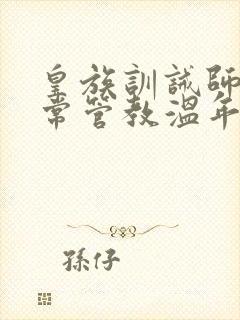 皇族訓誡師日
常管教溫年
孫仔